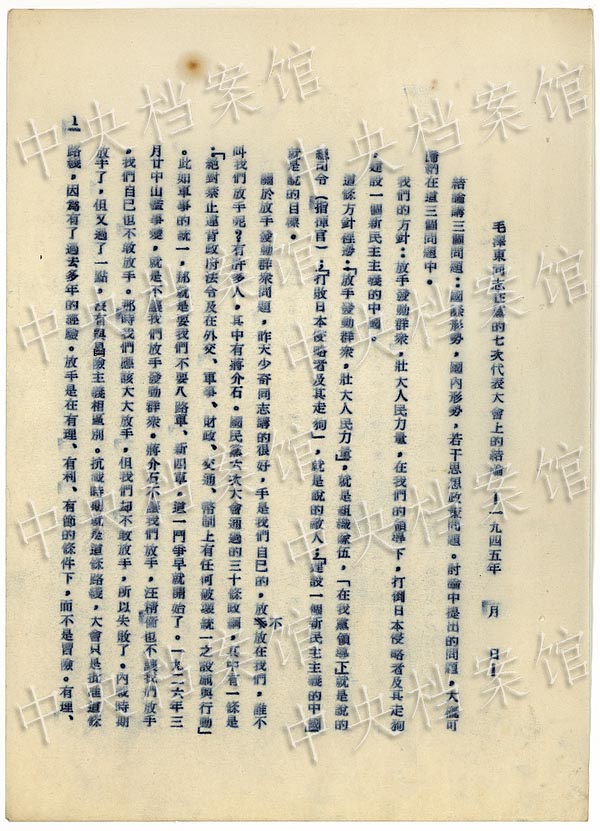 毛澤東同志在黨的七次代表大會上的結論——一九四五年 月 日——
結論講三個問題:國際形勢,國內形勢,若干思想政策問題。討論中提出的問題,大概可
歸納在這三個問題中。
我們的方針:放手發動群衆,壯大人民力量,在我們的領導下,打倒日本侵略者及其走狗
,建設一個新民主主義的中國。
這條方針裡邊:「放手發動群衆,壯大人民力量」就是組織隊伍,「在我黨領導下」就是說的
總司令(指揮官),「打敗日本侵略者及其走狗」,就是說的敵人,「建設一個新民主主義的中國」
就是說的目標。
關於放手發動群衆問題,昨天少奇同志講的很好,手是我們自己的,放不放在我們,誰不
叫我們放手呢?有許多人,其中有蔣介石。國民黨六次大會通過的三十條政綱,其中有一條是
:「絕對禁止違背政府法令及在外交、軍事、財政、交通、幣制上有任何破壞統一之設施與行動」
。此如軍事的統一,那就是要我們不要八路軍、新四軍,這一鬥爭早就開始了。一九二六年三
月廿中山艦事變,就是不讓我們放手發動群衆。蔣介石不讓我們放手,汪精衛也不讓我們放手
,我們自己也不敢放手。那時我們應該大大放手,但我們却不敢放手,所以失敗了。內戰時期
放手了,但又過了一點,沒有與冒險主義相區別。抗戰時期就是這條路綫,大會只是批准這條
路綫,因為有了過去多年的經驗。放手是在有理、有利、有節的條件下,而不是冒險。有理、
1
中央档案馆
中央档案馆
中央档案馆
中央档案馆
中央档案馆
中央档案馆
中央档案馆